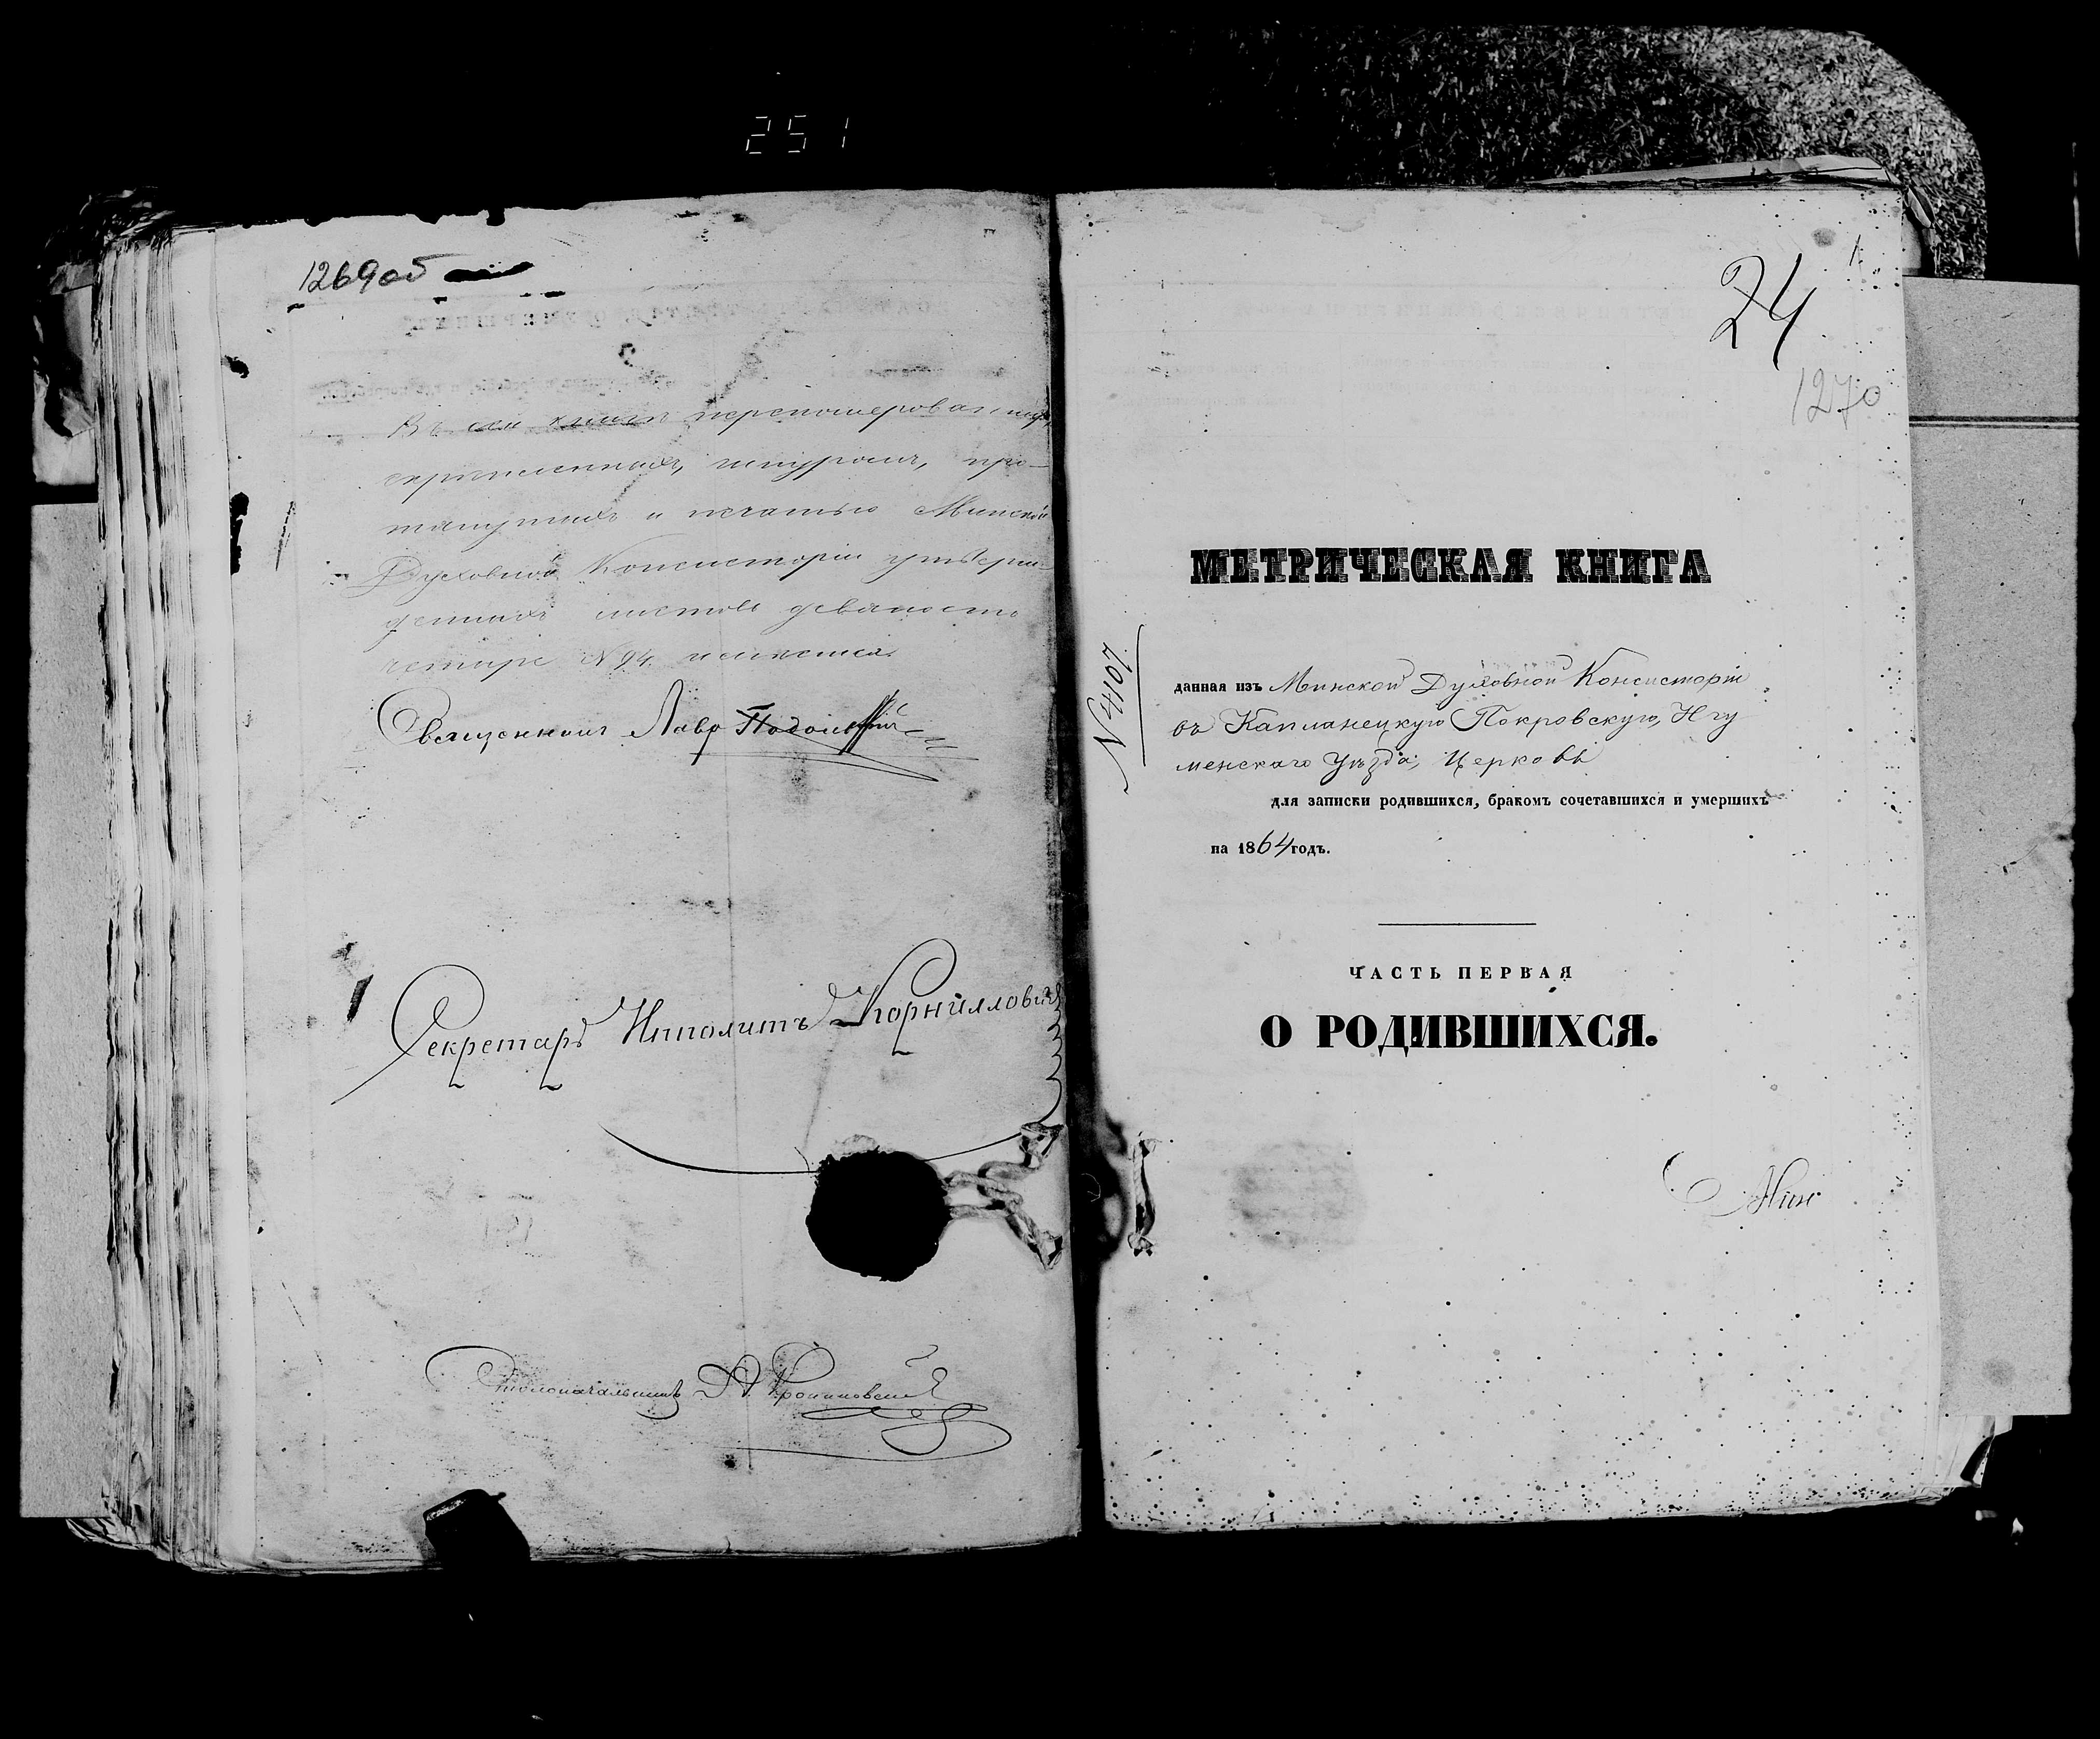 251
1269об
Въ сей книгѣ перенумерованныхъ,
скрѣпленныхъ, шнуромъ, про-
тянутыхъ и печатью Минской
Духовной Консисторіи утверж-
денныхъ листовъ девяносто
четыре №94.
Священникъ Лавр
Секретарь Ипполитъ Корниллович
Столоначальникъ
1
24
1270
МЕТРИЧЕСКАЯ КНИГА
N 4107.
данная изъ Минской Духовной Консисторіи
въ Капланецкую Покровскую, Игу
менскаго Уѣзда, Церковь
для записки родившихся, бракомъ сочетавшихся и умершихъ
на 1864 годъ.
ЧАСТЬ ПЕРВАЯ
О РОДИВШИХСЯ.
Мин